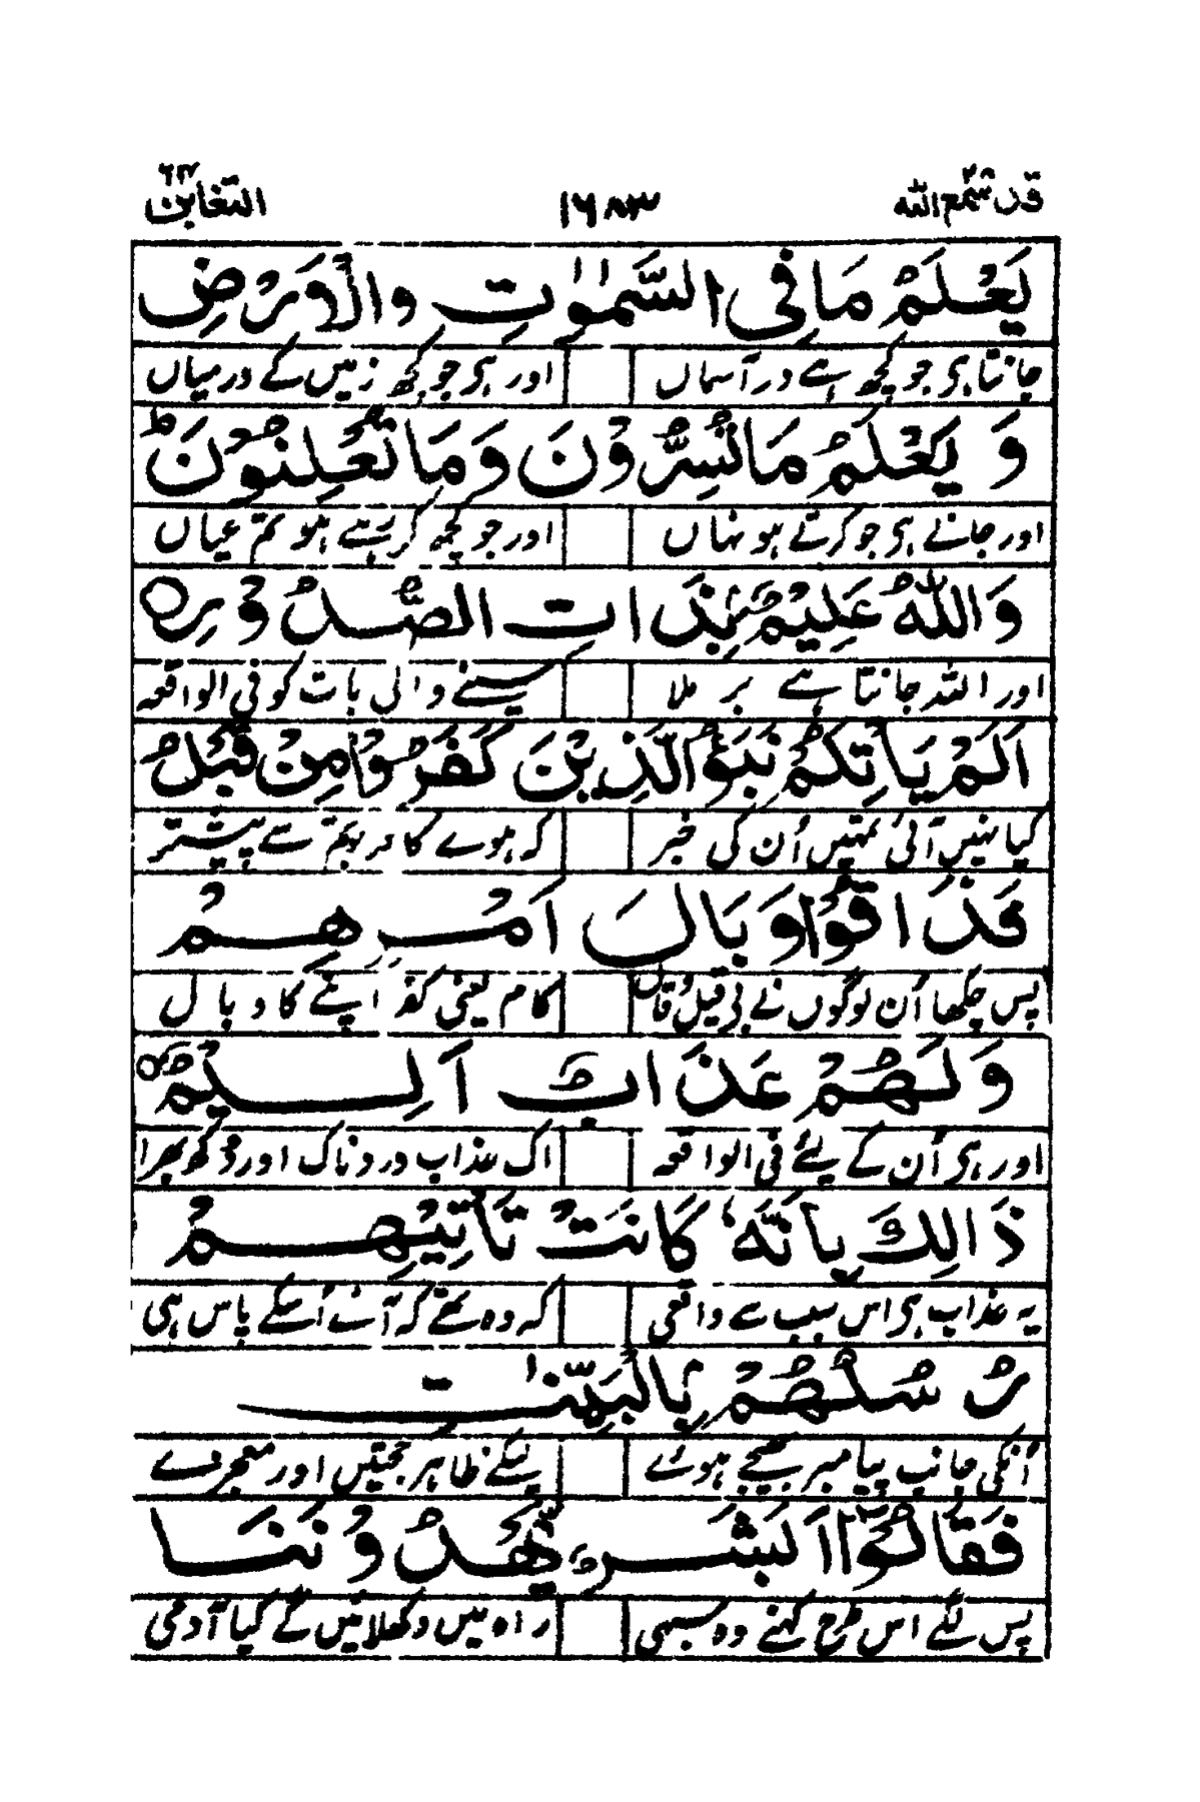 قد سمع الله ۲۸
۱۶۸۳
التغابن ۶۴
يَعْلَمُ مَا فِي السَّمٰوٰتِ وَالْاَرْضِ
جانتا ہی جو کچھ ہے در آسماں اور ہی جو کچھ زمیں کے درمیاں
وَيَعْلَمُ مَا تُسِرُّوْنَ وَمَا تُعْلِنُوْنَ ؕ
اور جانے ہی جو کرتے ہو نہاں اور جو کچھ کر رہے ہو تم عیاں
وَاللّٰهُ عَلِيْمٌۢ بِذَاتِ الصُّدُوْرِ ○
اور اللہ جانتا ہے بر ملا سینے والی بات کو فی الواقعہ
اَلَمْ يَاْتِكُمْ نَبَؤُا الَّذِيْنَ كَفَرُوْا مِنْ قَبْلُ
کیا نہیں آئی تمہیں اُن کی خبر کہ ہوے کافر بہم سے پیشتر
فَذَاقُوْا وَبَالَ اَمْرِهِمْ
پس چکھا اُن لوگوں نے بی قیل و قال کام یعنی کفر اپنے کا وبال
وَلَهُمْ عَذَابٌ اَلِيْمٌ ○
اور ہی اُن کے لئے فی الواقعہ اک عذاب دردناک اور دُکھ بھرا
ذَالِكَ بِاَنَّهٗ كَانَتْ تَاْتِيْهِمْ
یہ عذاب ہی اس سبب سے واقعی کہ وہ تھے کہ آتے اُنکے پاس ہی
رُسُلُهُمْ بِالْبَيِّنٰتِ
اُنکی جانب پیامبر بھیجے ہوئے لیکے ظاہر حجتیں اور معجزے
فَقَالُوْۤا اَبَشَرٌ يَّهْدُوْنَنَا
پس لگے اس طرح کہنے وہ سبھی راہ ہمیں دکھلائیں گے کیا آدمی